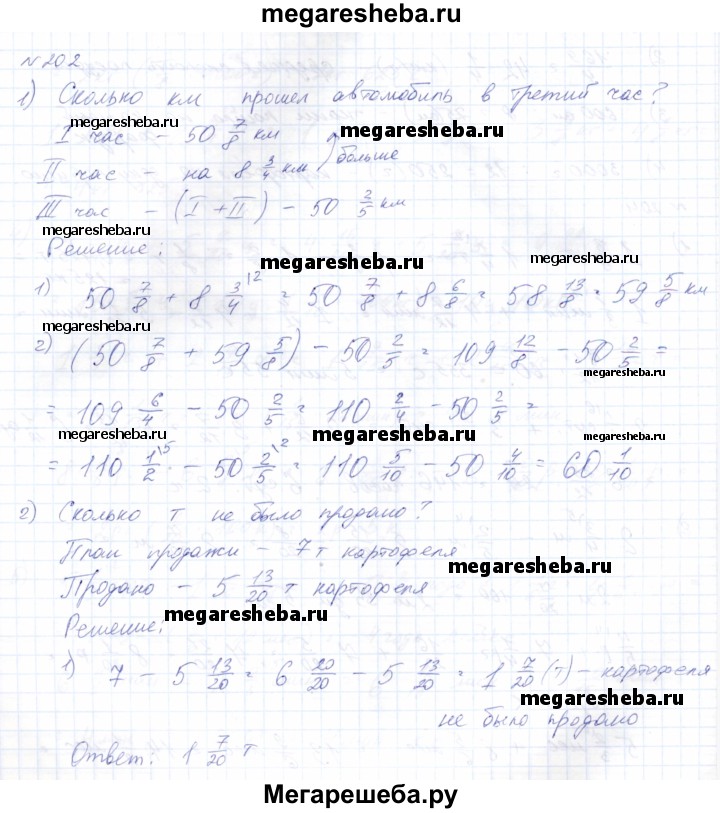 megaresheba.ru
№202
1) Сколько км прошел автомобиль в третий час?
megaresheba.ru megaresheba.ru
I час – 50 7/8 км
II час – на 8 3/4 км больше
III час – (I + II) – 50 2/5 км
megaresheba.ru
Решение:
megaresheba.ru
1) 50 7/8 + 8 3/4 \2 = 50 7/8 + 8 6/8 = 58 13/8 = 59 5/8 км
megaresheba.ru megaresheba.ru
2) (50 7/8 + 59 5/8) – 50 2/5 = 109 12/8 – 50 2/5 =
megaresheba.ru
= 109 6/4 – 50 2/5 = 110 2/4 – 50 2/5 =
megaresheba.ru megaresheba.ru megaresheba.ru
= 110 1/2 \5 – 50 2/5 \2 = 110 5/10 – 50 4/10 = 60 1/10
2) Сколько т не было продано?
План продажи – 7 т картофеля
megaresheba.ru
Продано – 5 13/20 т картофеля
megaresheba.ru
Решение:
1) 7 – 5 13/20 = 6 20/20 – 5 13/20 = 1 7/20 (т) – картофеля
megaresheba.ru megaresheba.ru
не было продано
Ответ: 1 7/20 т
Мегарешеба.ру